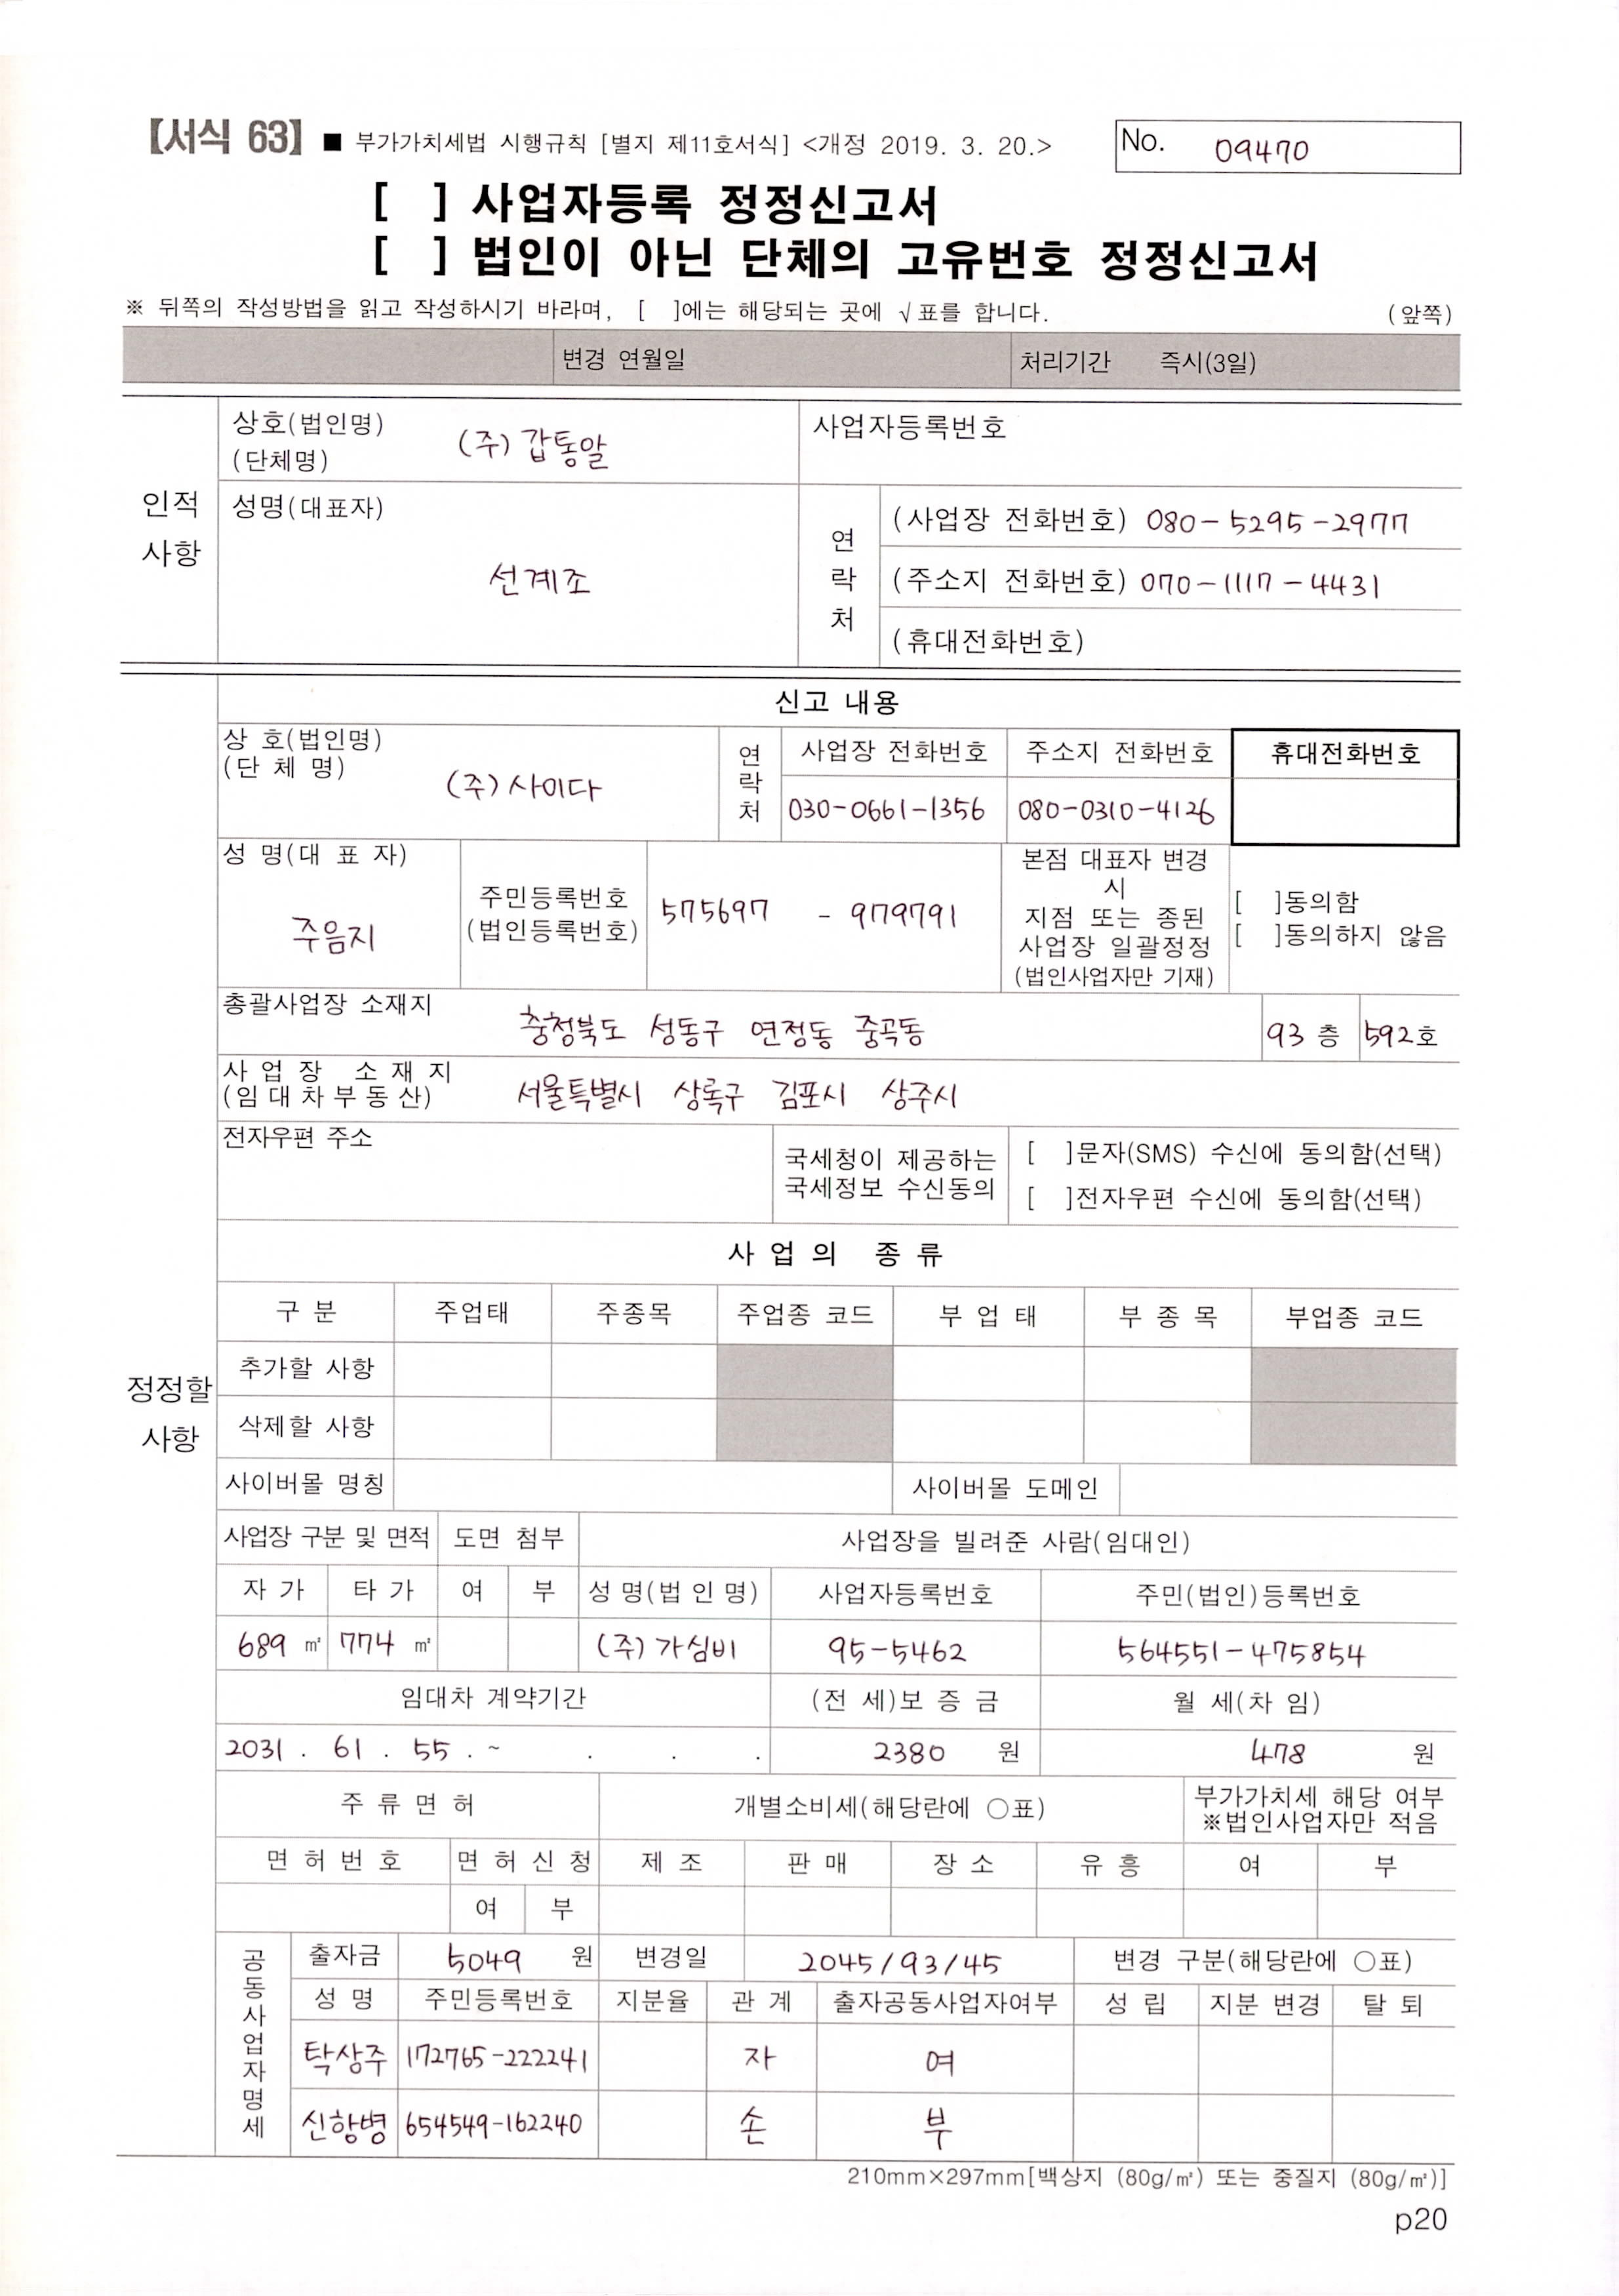 【서식 63】 ■ 부가가치세법 시행규칙 [별지 제11호서식] <개정 2019. 3. 20.>
No. 09470
[ ] 사업자등록 정정신고서
[ ] 법인이 아닌 단체의 고유번호 정정신고서
※ 뒤쪽의 작성방법을 읽고 작성하시기 바라며, [ ]에는 해당되는 곳에 √표를 합니다. (앞쪽)
변경 연월일 처리기간 즉시(3일)
인적 사항
상호(법인명)
(단체명)
(주)갑통알
사업자등록번호
성명(대표자)
선계조
연락처
(사업장 전화번호) 080-5295-2977
(주소지 전화번호) 070-1117-4431
(휴대전화번호)
정정할 사항
신고 내용
상 호(법인명)
(단 체 명)
(주)사이다
연락처
사업장 전화번호 주소지 전화번호 휴대전화번호
030-0661-1356 080-0310-4126
성 명(대 표 자)
주음지
주민등록번호
(법인등록번호)
575697 - 979791
본점 대표자 변경
시
지점 또는 종된
사업장 일괄정정
(법인사업자만 기재)
[ ]동의함
[ ]동의하지 않음
총괄사업장 소재지
충청북도 성동구 연정동 중곡동 93 층 592호
사 업 장 소 재 지
(임 대 차 부 동 산)
서울특별시 상록구 김포시 상주시
전자우편 주소
국세청이 제공하는
국세정보 수신동의
[ ]문자(SMS) 수신에 동의함(선택)
[ ]전자우편 수신에 동의함(선택)
사 업 의 종 류
구 분 주업태 주종목 주업종 코드 부 업 태 부 종 목 부업종 코드
추가할 사항
삭제할 사항
사이버몰 명칭 사이버몰 도메인
사업장 구분 및 면적 도면 첨부 사업장을 빌려준 사람(임대인)
자 가 타 가 여 부 성 명(법 인 명) 사업자등록번호 주민(법인)등록번호
689 ㎡ 774 ㎡ (주)가심비 95-5462 564551-475854
임대차 계약기간 (전 세)보 증 금 월 세(차 임)
2031 . 61 . 55 . ~ . . . 2380 원 478 원
주 류 면 허 개별소비세(해당란에 ○표)
부가가치세 해당 여부
※법인사업자만 적음
면 허 번 호 면 허 신 청 제 조 판 매 장 소 유 흥 여 부
여 부
공동사업자명세
출자금 5049 원 변경일 2045/93/45 변경 구분(해당란에 ○표)
성 명 주민등록번호 지분율 관 계 출자공동사업자여부 성 립 지분 변경 탈 퇴
탁상주 172765-222241 자 여
신항병 654549-162240 손 부
210mm×297mm[백상지 (80g/㎡) 또는 중질지 (80g/㎡)]
p20